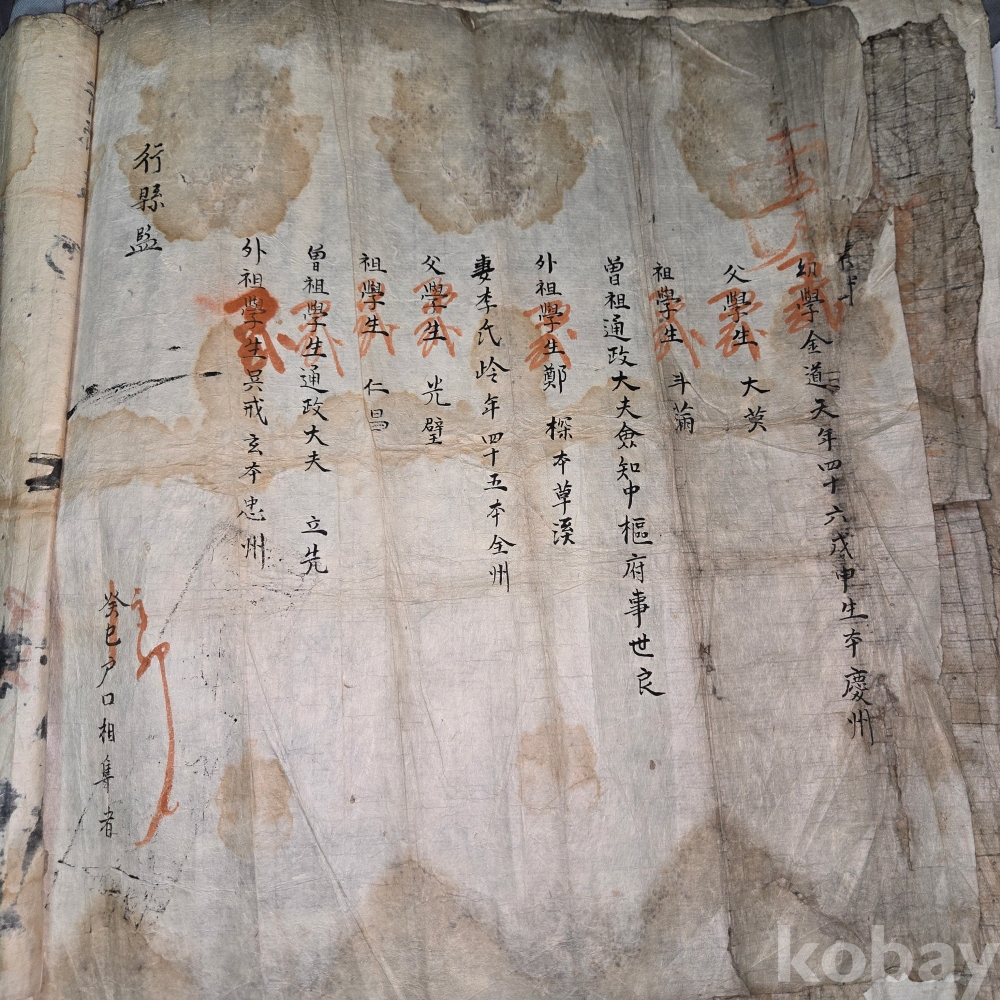 幼學金道天年四十六戊申生本慶州
父學生 大英
祖學生 斗
曾祖通政大夫僉知中樞府事世良
外祖學生鄭 探本草溪
妻李氏齡年四十五本全州
父學生 光璧
祖學生 仁昌
曾祖學生通政大夫 立先
外祖學生吳戒玄本忠州
行縣監
癸巳戶口相準者
kobay